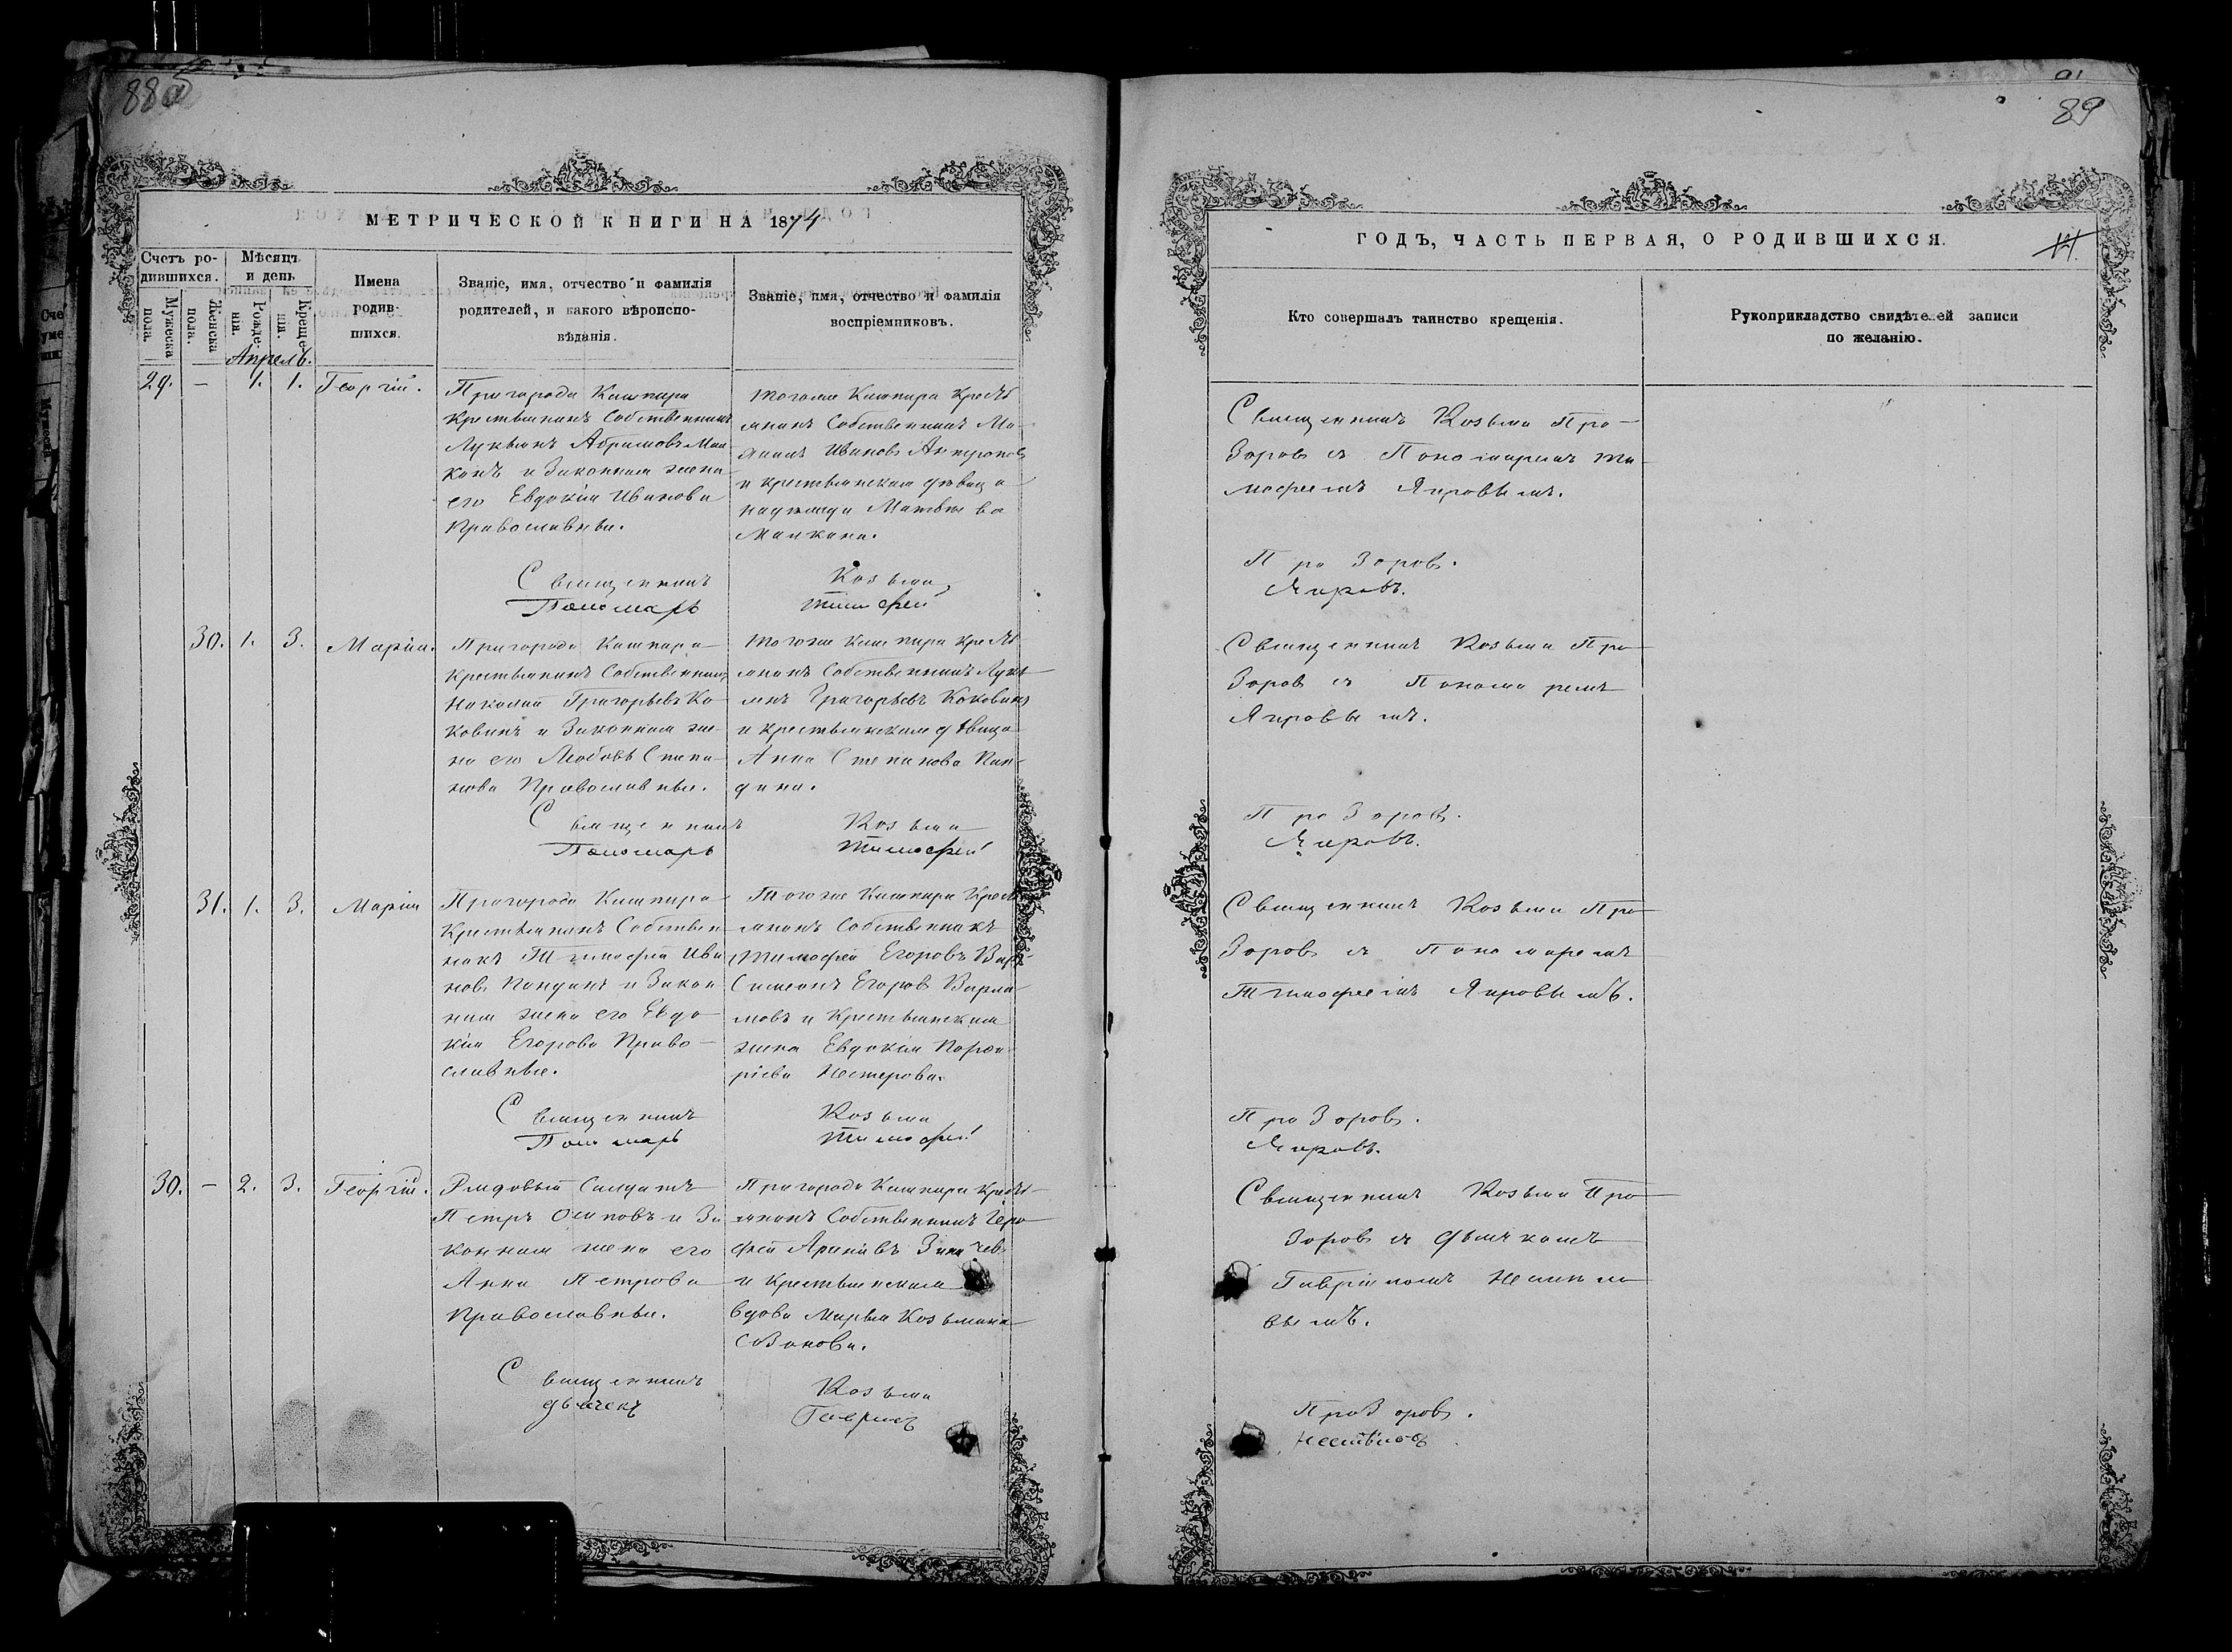 88б
МЕТРИЧЕСКОЙ КНИГИ НА 1874
Счетъ ро-
дившихся.
Мѣсяцъ
и день
Мужеска
пола.
Женска
пола.
Рожде-
нія.
Креще-
нія.
Имена
родив-
шихся.
Званіе, имя, отчество и фамилія
родителей, и какого вѣроиспо-
вѣданія.
Званіе, имя, отчество и фамилія
воспріемниковъ.
Апрель.
29. — 1. 1. Георгій.
Пригорода Кашпира
крестьянинъ Собственникъ
Лукьянъ Абрамовъ
и Законная жена
его Евдокія Иванова
Православные.
тогоже Кашпира кресть
янинъ Собственникъ
Ивановъ
и крестьянская дѣвица
Матвѣева
Священникъ Козьма
Пономарь Тимофей
30. 1. 3. Марія.
Пригорода Кашпира
крестьянинъ Собственникъ
Николай Григорьевъ Ко-
ковинъ и Законная же-
на его Любовь Степа-
нова Православные.
тогоже Кашпира кресть
янинъ Собственникъ Лукь
янъ Григорьевъ Коковинъ
и крестьянская дѣвица
Анна Степанова Пан-
дина.
Священникъ Козьма
Пономарь Тимофей
31. 1. 3. Марія
Пригорода Кашпира
Крестьянинъ Собствен
никъ Тимофей Ива
новъ Пандинъ и Закон
ная жена его Евдо-
кія Егорова Право-
славные.
Тогоже Кашпира Кресть
янинъ Собственникъ
Тимофей Егоровъ
Симеонъ Егоровъ Варла-
мовъ и Крестьянская
жена Евдокія Порфи-
ріева Нестерова.
Священникъ Козьма
Пономарь Тимофей
30. — 2. 3. Георгій.
Рядовый Солдатъ
Петръ Осиповъ и За
конная жена его
Анна Петрова
Православные.
Пригорода Кашпира Кресть
янинъ Собственникъ Еро-
фей
и Крестьянская
вдова Марья Козьмина
Священникъ Козьма
дьячекъ Гавріилъ
89
ГОДЪ, ЧАСТЬ ПЕРВАЯ, О РОДИВШИХСЯ.
Кто совершалъ таинство крещенія.
Рукоприкладство свидѣтелей записи
по желанію.
Священникъ Козьма Про-
зоровъ съ Пономаремъ Ти-
мофеемъ Яировымъ.
Прозоровъ.
Яировъ.
Священникъ Козьма Про
зоровъ съ Пономаремъ
Яировымъ.
Прозоровъ.
Яировъ.
Священникъ Козьма Про
зоровъ съ Пономаремъ
Тимофеемъ Яировымъ.
Прозоровъ.
Яировъ.
Священникъ Козьма Про
зоровъ съ дьячкомъ
Гавріиломъ
вымъ.
Прозоровъ.